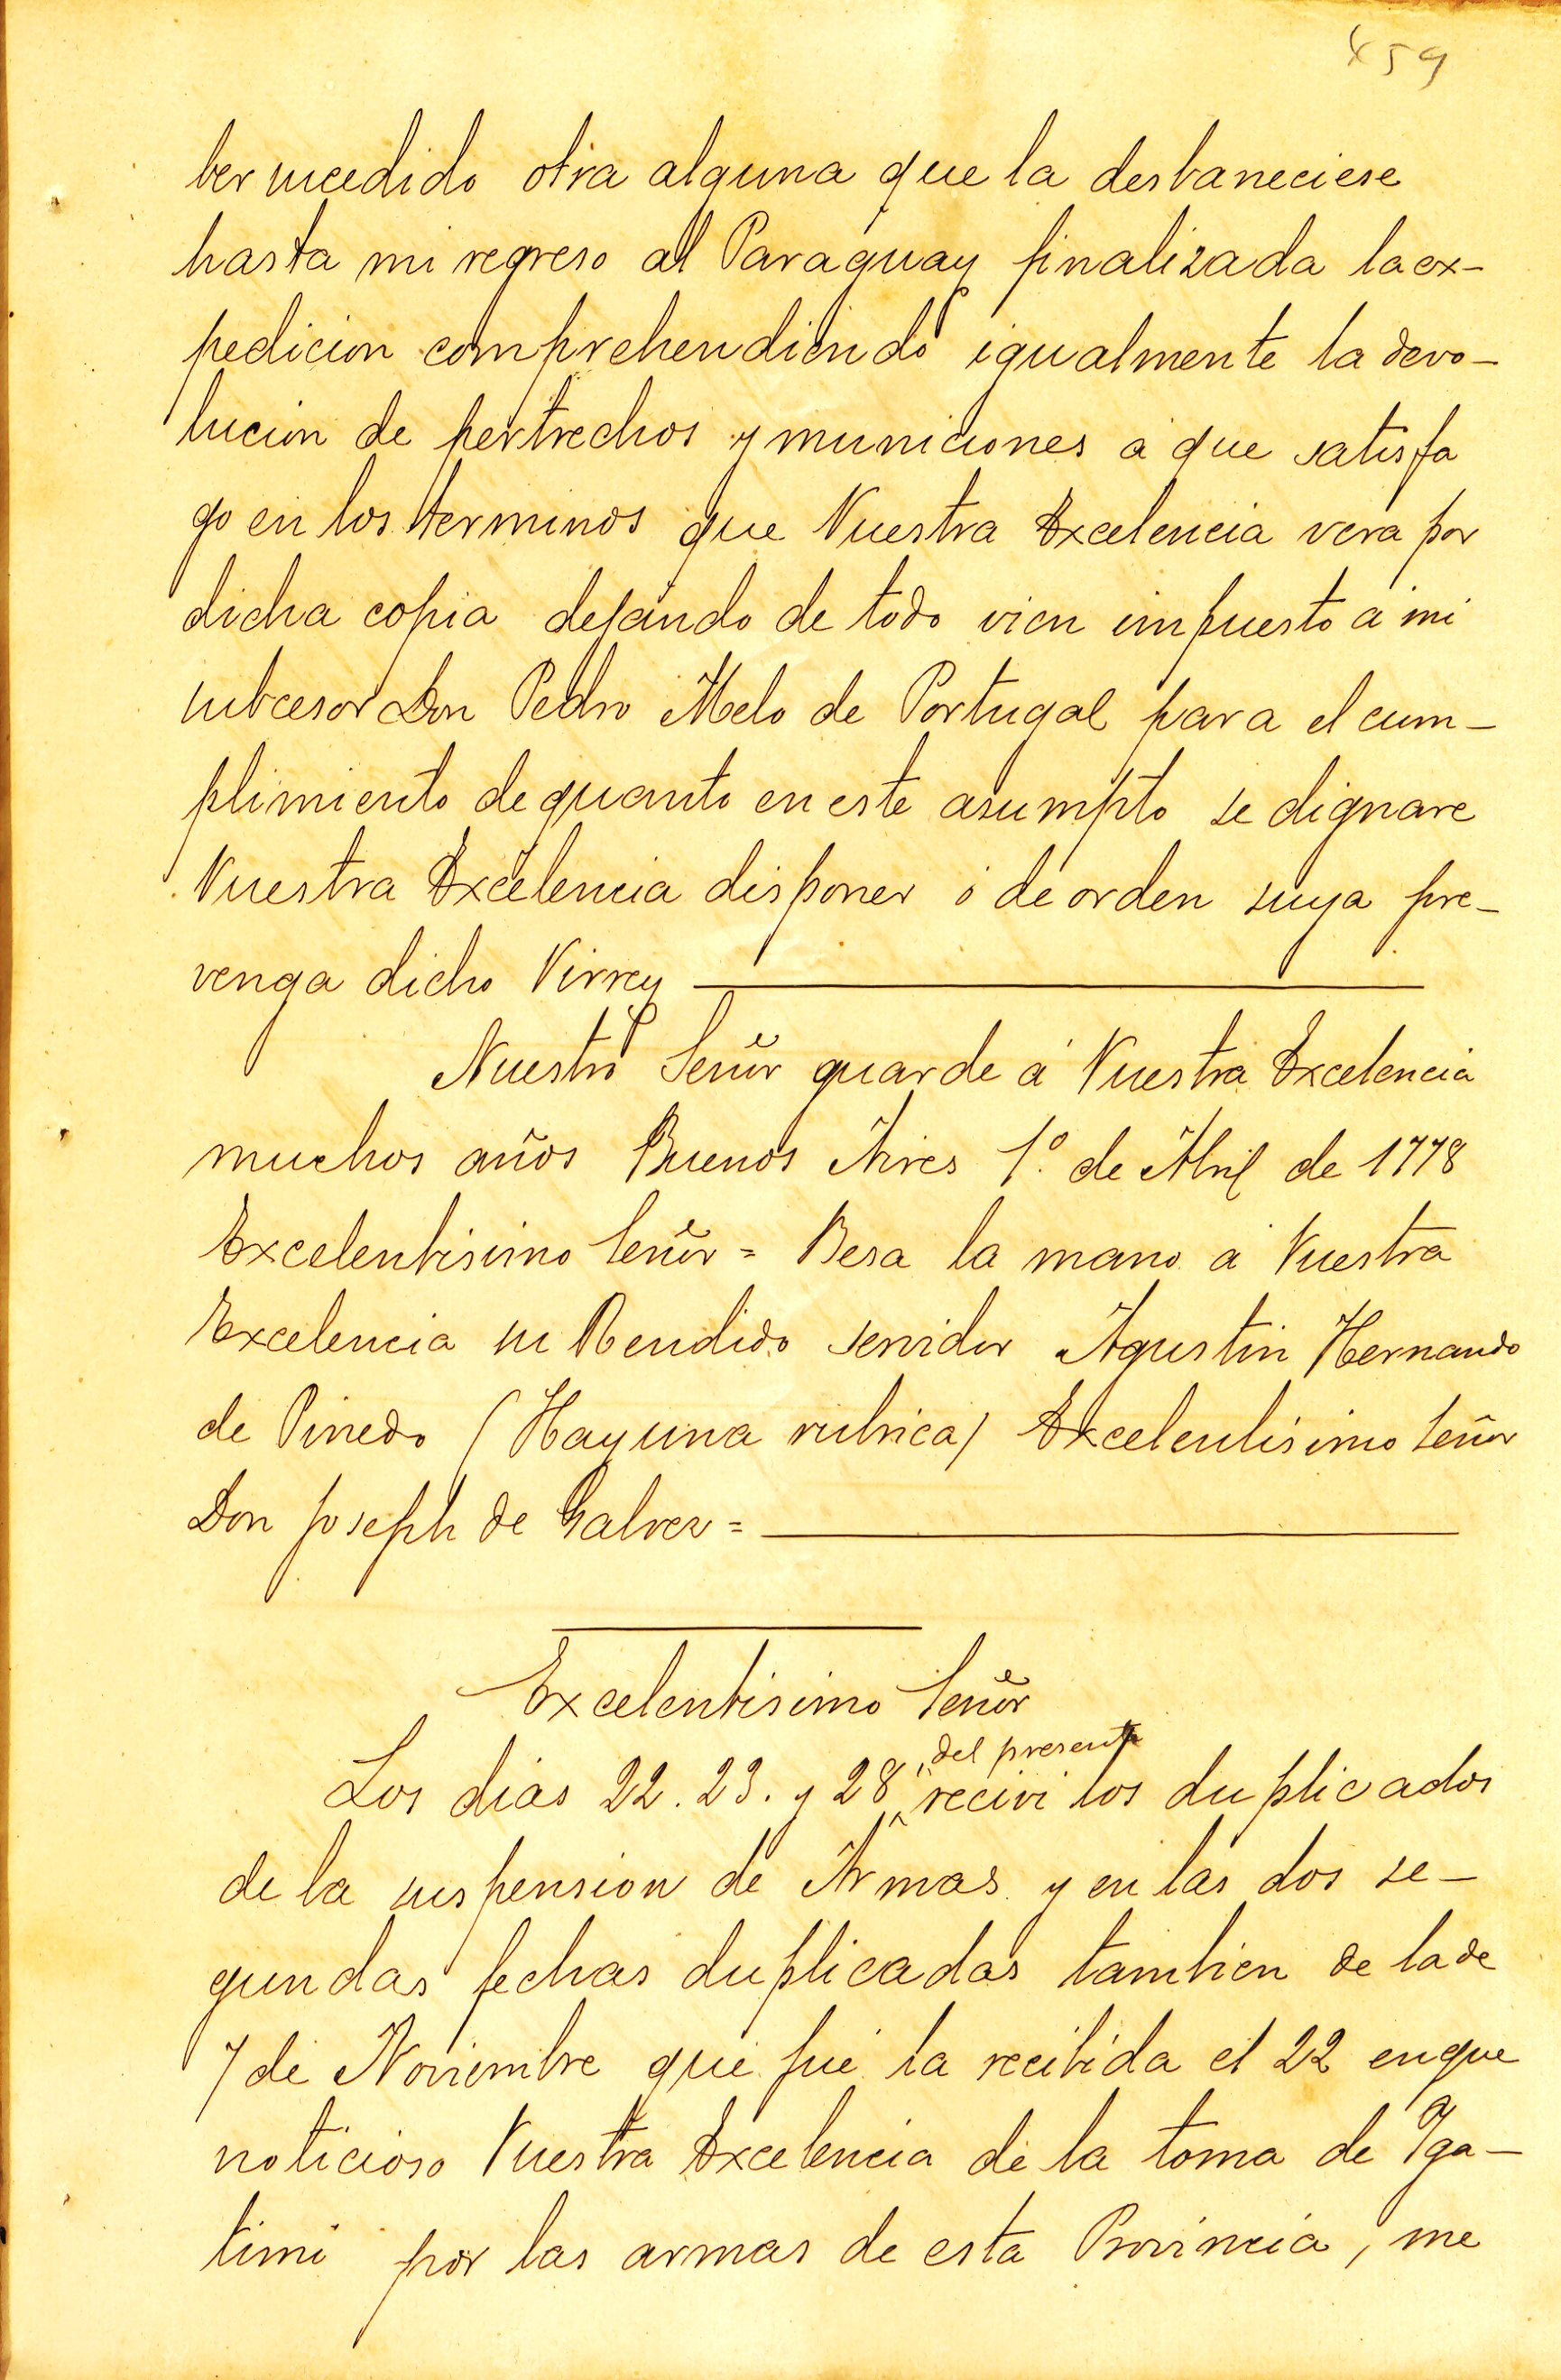 459
ber sucedido otra alguna que la desbaneciese
hasta mi regreso al Paraguay finalizada la ex-
pedicion comprehendiendo igualmente la devo-
lucion de pertrechos y municiones á que satisfa
go en los terminos que Vuestra Excelencia vera por
dicha copia dejando de todo vien impuesto á mi
subcesor Don Pedro Melo de Portugal para el cum-
plimiento de quanto en este asumpto se dignare
Vuestra Excelencia disponer ó de orden suya pre-
venga dicho Virrey
Nuestro Señor guarde á Vuestra Excelencia
muchos años Buenos Aires 1º. de Abril de 1778
Excelentisimo Señor = Besa la mano á Vuestra
Excelencia su Rendido servidor Agustin Hernando
de Pinedo (Hay una rubrica) Excelentisimo Señor
Don Joseph de Galvez =
Excelentisimo Señor
Los dias 22. 23. y 28 del presente recivi los duplicados
de la suspension de Armas y en las dos se-
gundas fechas duplicadas tambien de la de
7 de Noviembre que fué la recibida el 22 en que
noticioso Vuestra Excelencia de la toma de Yga-
timi por las armas de esta Provincia, me